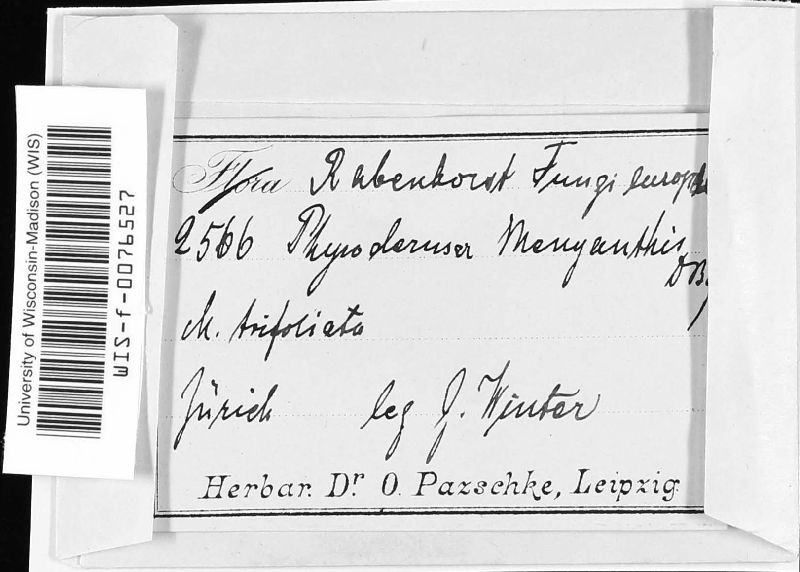 University of Wisconsin-Madison (WIS)
WIS-f-0076527
Flora Rabenhorst Fungi europ
2566 Physoderma Menyanthis
DBy
M. trifoliata
Zürich leg G. Winter
Herbar. Dr. O. Pazschke, Leipzig.